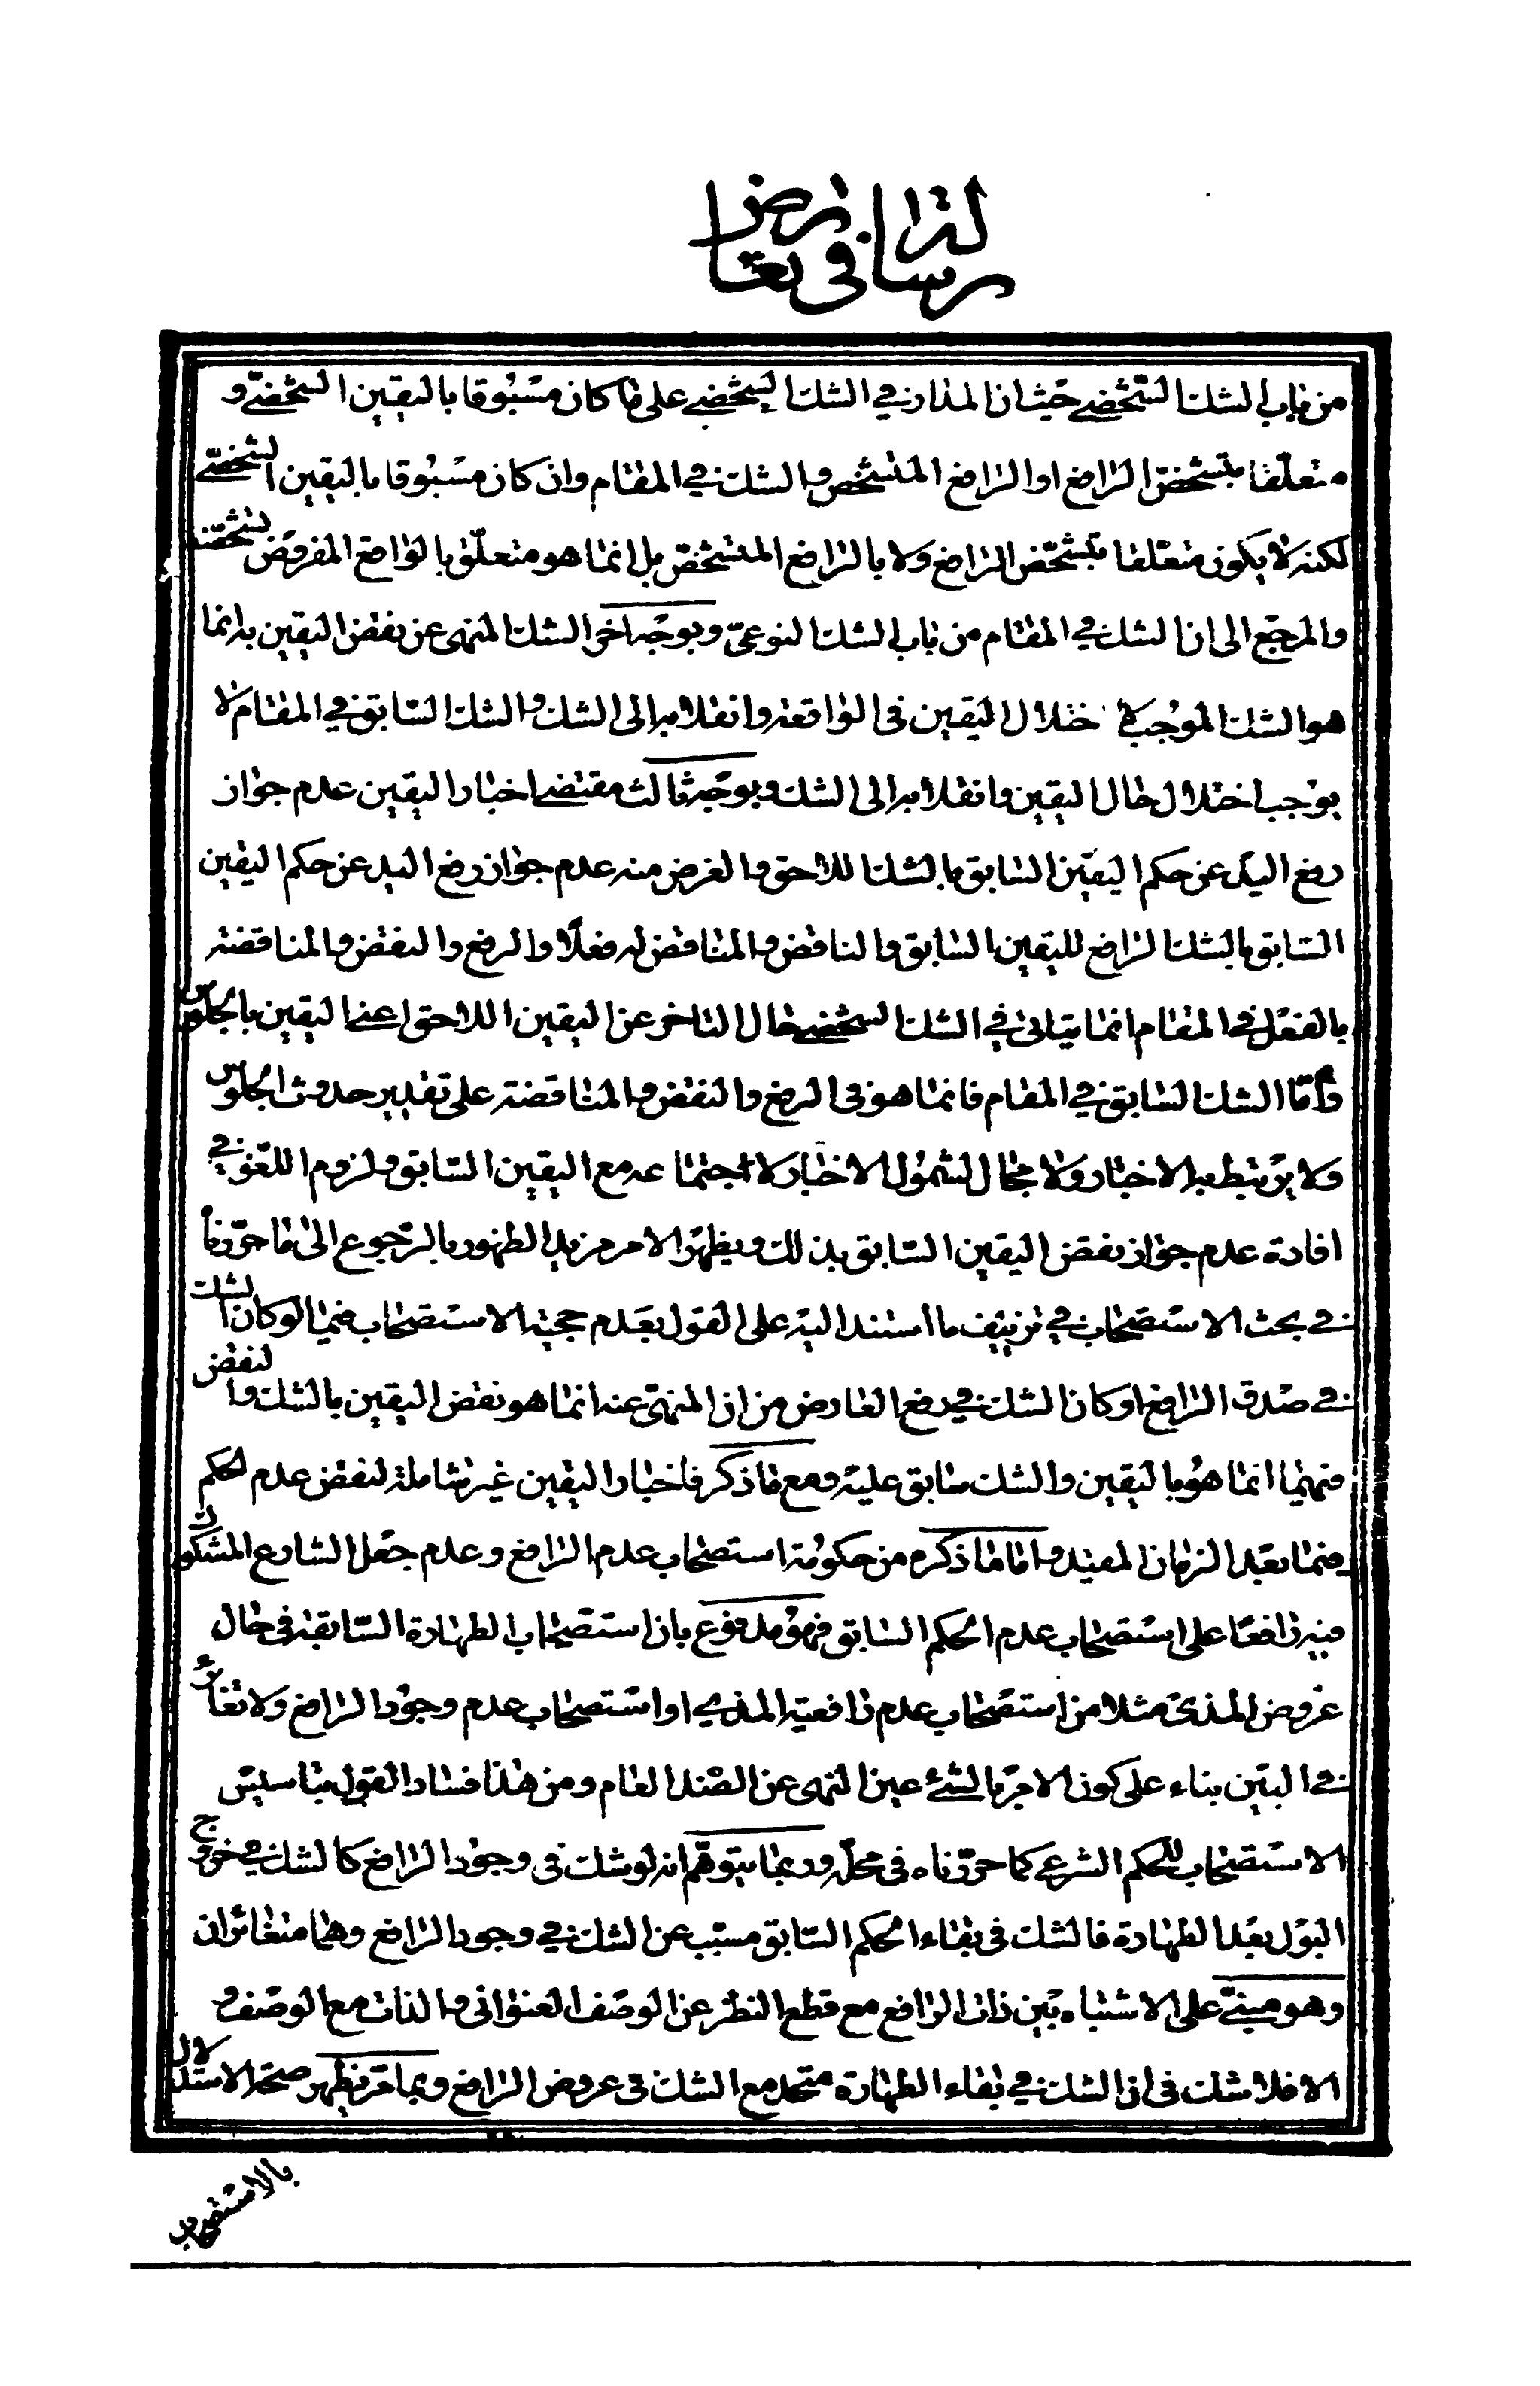 رسالة في تعارض
من باب الشك الشخصي حيث ان المدار في الشك الشخصي على ما كان مسبوقا باليقين الشخصي و
متعلقا بتشخص الرافع او الرافع المتشخص والشك في المقام وان كان مسبوقا باليقين الشخصي
لكنه لا يكون متعلقا بتشخص الرافع ولا بالرافع المتشخص بل انما هو متعلق بالواقع المفروض تشخصه
والمرجع الى ان الشك في المقام من باب الشك النوعي وبوجه اخر الشك المنهى عن نقض اليقين به انما
هو الشك الموجب لاختلال اليقين فى الواقعة وانقلابه الى الشك والشك السابق في المقام لا
يوجب اختلال حال اليقين وانقلابه الى الشك وبوجه ثالث مقتضى اخبار اليقين عدم جواز
رفع اليد عن حكم اليقين السابق بالشك اللاحق والغرض منه عدم جواز رفع اليد عن حكم اليقين
السابق بالشك الرافع لليقين السابق والناقض والمناقض له فعلا والرفع والنقض والمناقضة
بالفعل في المقام انما يتاتى في الشك الشخصي حال التاخر عن اليقين اللاحق اعنى اليقين بالجلوس
واما الشك السابق في المقام فانما هو فى الرفع والنقض والمناقضة على تقدير حدوث الجلوس
ولا يرتبط به الاخبار ولا مجال لشمول الاخبار لاجتماعه مع اليقين السابق ولزوم اللغو في
افادة عدم جواز نقض اليقين السابق بذلك ويظهر الامر مزيد الظهور بالرجوع الى ما حررناه
في بحث الاستصحاب في تزييف ما استند اليه على القول بعدم حجية الاستصحاب فيما لو كان الشك
في صدق الرافع او كان الشك في رفع العارض من ان المنهى عنه انما هو نقض اليقين بالشك والنقض
فيهما انما هو باليقين والشك سابق عليه ومع ما ذكر فاخبار اليقين غير شاملة لنقض عدم الحكم
فيما بعد الزمان المفيد واما ما ذكره من حكومة استصحاب عدم الرافع وعدم جعل الشارع المشكوك
فيه رافعا على استصحاب عدم الحكم السابق فهو مدفوع بان استصحاب الطهارة السابقة فى حال
عروض المذى مثلا من استصحاب عدم رافعية المذي او استصحاب عدم وجود الرافع ولا تغاير
في البين بناء على كون الامر بالشئ عين النهى عن الضد العام ومن هذا فساد القول بتاسيس
الاستصحاب للحكم الشرعي كما حررناه فى محله وربما يتوهم انه لو شك فى وجود الرافع كالشك في خروج
البول بعد الطهارة فالشك فى بقاء الحكم السابق مسبب عن الشك في وجود الرافع وهما متغائران
وهو مبني على الاشتباه بين ذات الرافع مع قطع النظر عن الوصف العنوانى والذات مع الوصف و
الا فلا شك فى ان الشك في بقاء الطهارة متحد مع الشك فى عروض الرافع وبما مر يظهر صحة الاستدلال
بالاستصحاب